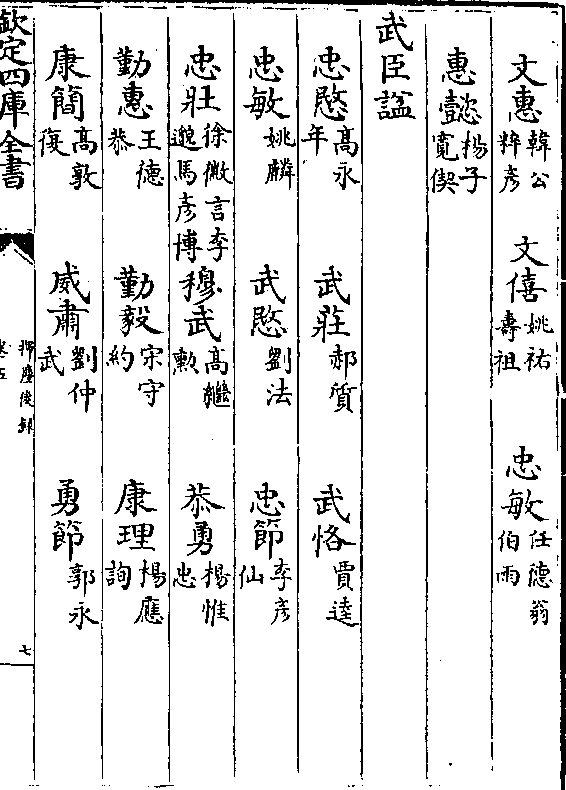 文惠韓公粹彦 文僖姚祐壽祖 忠敏任德翁伯雨
惠懿楊子寛偰
武臣諡
忠愍高永年 武莊郝質 武恪賈逵
忠敏姚麟 武愍劉法 忠節李彦仙
忠壯徐徽言李邈馬彦博 穆武高繼勲 恭勇楊惟忠
勤惠王德恭 勤毅宋守約 康理楊應詢
康簡高敦復 威肅劉仲武 勇節郭永
欽定四庫全書
揮麈後録
卷五
七